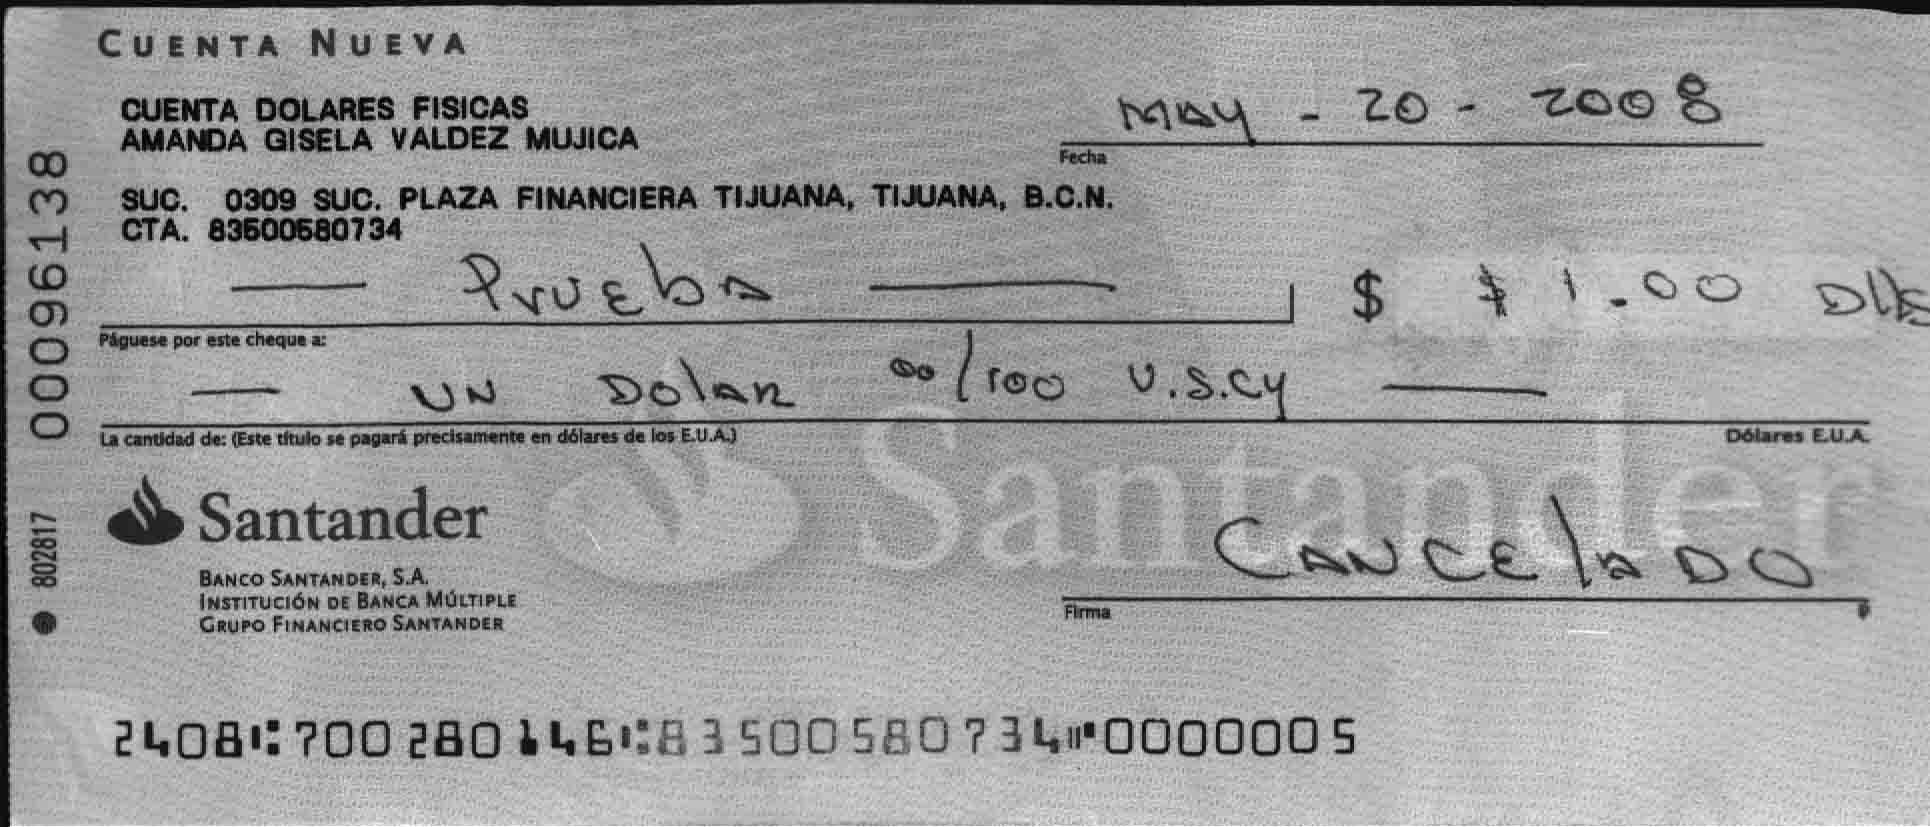 CUENTA NUEVA
CUENTA DOLARES FISICAS
AMANDA GISELA VALDEZ MUJICA
MAY - 20 - 2008
Fecha
SUC. 0309 SUC. PLAZA FINANCIERA TIJUANA, TIJUANA, B.C.N.
CTA. 83500580734
00096138
— Prueba — $ $ 1.00 Dlls
Páguese por este cheque a:
— UN Dolar 00/100 U.S.Cy —
La cantidad de: (Este título se pagará precisamente en dólares de los E.U.A.) Dólares E.U.A.
Santander
Santander
BANCO SANTANDER, S.A.
INSTITUCIÓN DE BANCA MÚLTIPLE
GRUPO FINANCIERO SANTANDER
CANCElADO
Firma
802817
2408⑆700280146⑆83500580734⑈0000005